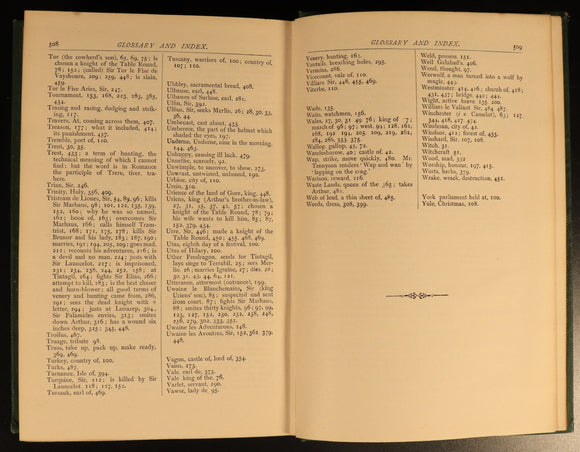 508
GLOSSARY AND INDEX.
Tor (the cowherd's son), 67, 69, 75; is
chosen a knight of the Table Round,
78; 151; (called) Sir Tor le Fise de
Vayshoure, 209; 259, 448; is slain,
459.
Tor le Fise Aries, Sir, 247.
Tournament, 153, 168, 223, 283, 385,
434.
Trasing and rasing, dodging and strik-
ing, 117.
Travers, At, coming across them, 407.
Treason, 177; what it included, 414;
its punishment, 437.
Tremble, port of, 110.
Trent, 30, 35.
Trest, 433; a term of hunting, the
technical meaning of which I cannot
find: but the word is in Romance
the participle of Trere, tirer, tra-
here.
Trias, Sir, 246.
Trinity, Holy, 356, 409.
Tristram de Liones, Sir, 54, 89, 96; kills
Sir Marhaus, 98; 101, 122, 135, 139,
152, 160; why he was so named,
161; book of, 163; overcomes Sir
Marhaus, 166; calls himself Tram-
trist, 168; 171, 175, 178; kills Sir
Brunor and his lady, 183; 187, 190;
marries, 191; 194, 205, 209; goes mad,
212; recounts his adventures, 216; is
a devil and no man, 224; justs with
Sir Launcelot, 227; is imprisoned,
231; 234, 238, 244, 252, 258; at
Tintagil, 264; fights Sir Elias, 266;
attempt to kill, 285; is the best chaser
and faun-blower; all good terms of
venery and hunting came from, 286,
291; sees the dead knight with a
letter, 294; justs at Lonazep, 304,
Sir Palamides envies, 313; smites
down Arthur, 316; has a wound six
inches deep, 325; 345, 448.
Troilus, 467.
Truage, tribute 98.
Truss, take up, pack up, make ready,
369, 469.
Turkey, country of, 100.
Turks, 487.
Turnance, Isle of, 394.
Turquine, Sir, 112; is killed by Sir
Launcelot, 118; 127, 151.
Tursauk, earl of, 469.
Tuscany, warriors of, 100; country of,
107; 110.
Ubbley, sacramental bread, 408.
Ulbause, earl, 448.
Ulbawes of Surluse, earl, 281.
Ulfin, Sir, 392.
Ulfius, Sir, seeks Merlin, 26; 28, 30, 33,
36, 44
Umbecast, cast about, 433.
Umberere, the part of the helmet which
shaded the eyes, 197.
Underne, Undorne, nine in the morning,
144, 463.
Unhappy, causing ill luck, 479.
Unnethe, scarcely, 92.
Unwimple, to uncover, to show, 273.
Unwrast, untwisted, unbound, 192.
Urbine, city of, 110.
Urein, 310.
Urience of the land of Gore, king, 448.
Uriens, king (Arthur's brother-in-law),
27, 31, 35, 37, 42, 57; chosen a
knight of the Table Round, 78; 79;
his wife wants to kill him, 85; 87,
152, 379, 434.
Urre, Sir, 446; made a knight of the
Table Round, 450; 455, 468, 469.
Utas, eighth day of a festival, 100.
Utas of Hilary, 100.
Uther Pendragon, sends for Tintagil,
lays siege to Terrabil, 25; sees Mer-
lin, 26; marries Igraine, 27; dies, 28;
30, 31, 43, 44, 64, 121.
Utterance, uttermost (outrance), 199.
Uwaine le Blanchemains, Sir (king
Uriens' son), 85; suspected and sent
from court, 87; fights Sir Marhaus,
88; smites thirty knights, 96; 97, 99,
123, 127, 152, 230, 232, 238, 248,
256, 279, 302, 333, 352.
Uwaine les Adventurous, 148.
Uwaine les Avoutres, Sir, 152, 362, 379,
448.
Vagon, castle of, lord of, 354.
Vains, 173.
Vale, earl de, 373.
Vale king of the, 76.
Varlet, servant, 290.
Vawse, lady de, 95.
GLOSSARY AND INDEX.
509
Venery, hunting, 161;
Ventails, breathing holes, 295.
Vermins, 266.
Vicecount, vale of, 110.
Villiars, Sir, 448, 455, 469.
Viterbe, 110.
Wade, 135.
Waits, watchmen, 136.
Wales, 27, 30, 31, 49, 76; king of, 37;
march of, 96; 97; west, 99; 128, 161,
168, 192, 194, 205, 209, 219, 262,
284, 286, 352, 375.
Wallop, gallop, 45, 72.
Wandesborow, 40; castle of, 42.
Wap, strike, move quickly, 480. Mr.
Tennyson renders 'Wap and wan' by
'lapping on the crag.'
Warison, reward, 116.
Waste Lands, queen of the, 365; takes
Arthur, 481.
Web of lead, a thin sheet of, 485.
Weeds, dress, 308, 399.
Weld, possess, 151.
Well Galahad's, 406.
Wend, thought, 97.
Werwolf, a man turned into a wolf by
magic, 449.
Westminster, 414, 416; church of, 418;
431, 437; bridge, 442; 444.
Wight, active, brave, 135, 200.
William le Valiant, Sir, 484, 487.
Winchester (i e. Camelot), 63; 127,
344, 418, 427, 474.
Windesan, city of, 42.
Windsor, 421; forest of, 453.
Wisshard, Sir, 107, 108.
Witch, 31.
Witchcraft, 51.
Wood, mad, 332
Worship, honour, 197, 413.
Worts, herbs, 379.
Wrake, wreck, destruction, 432.
York parliament held at, 100.
Yule, Christmas, 108.